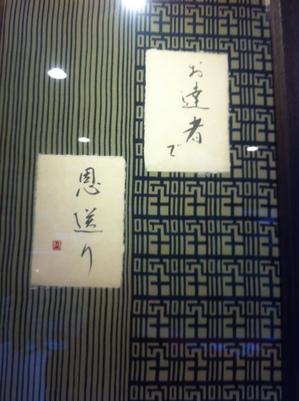 お達者で
恩送り